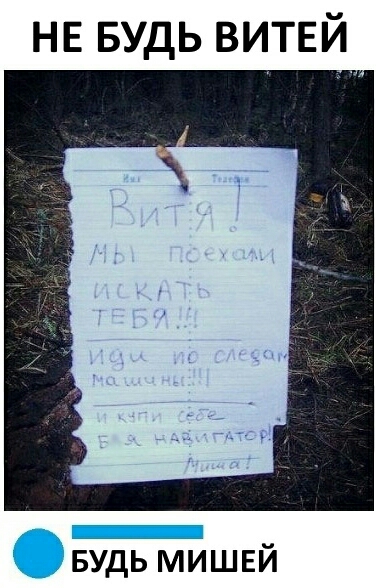 НЕ БУДЬ ВИТЕЙ
Имя Телефон
Витя!
мы поехали
искать
ТЕБЯ!!!
иди по следам
машины!!!!
и купи себе
Б я НАВИГАТОР!
Миша!
БУДЬ МИШЕЙ